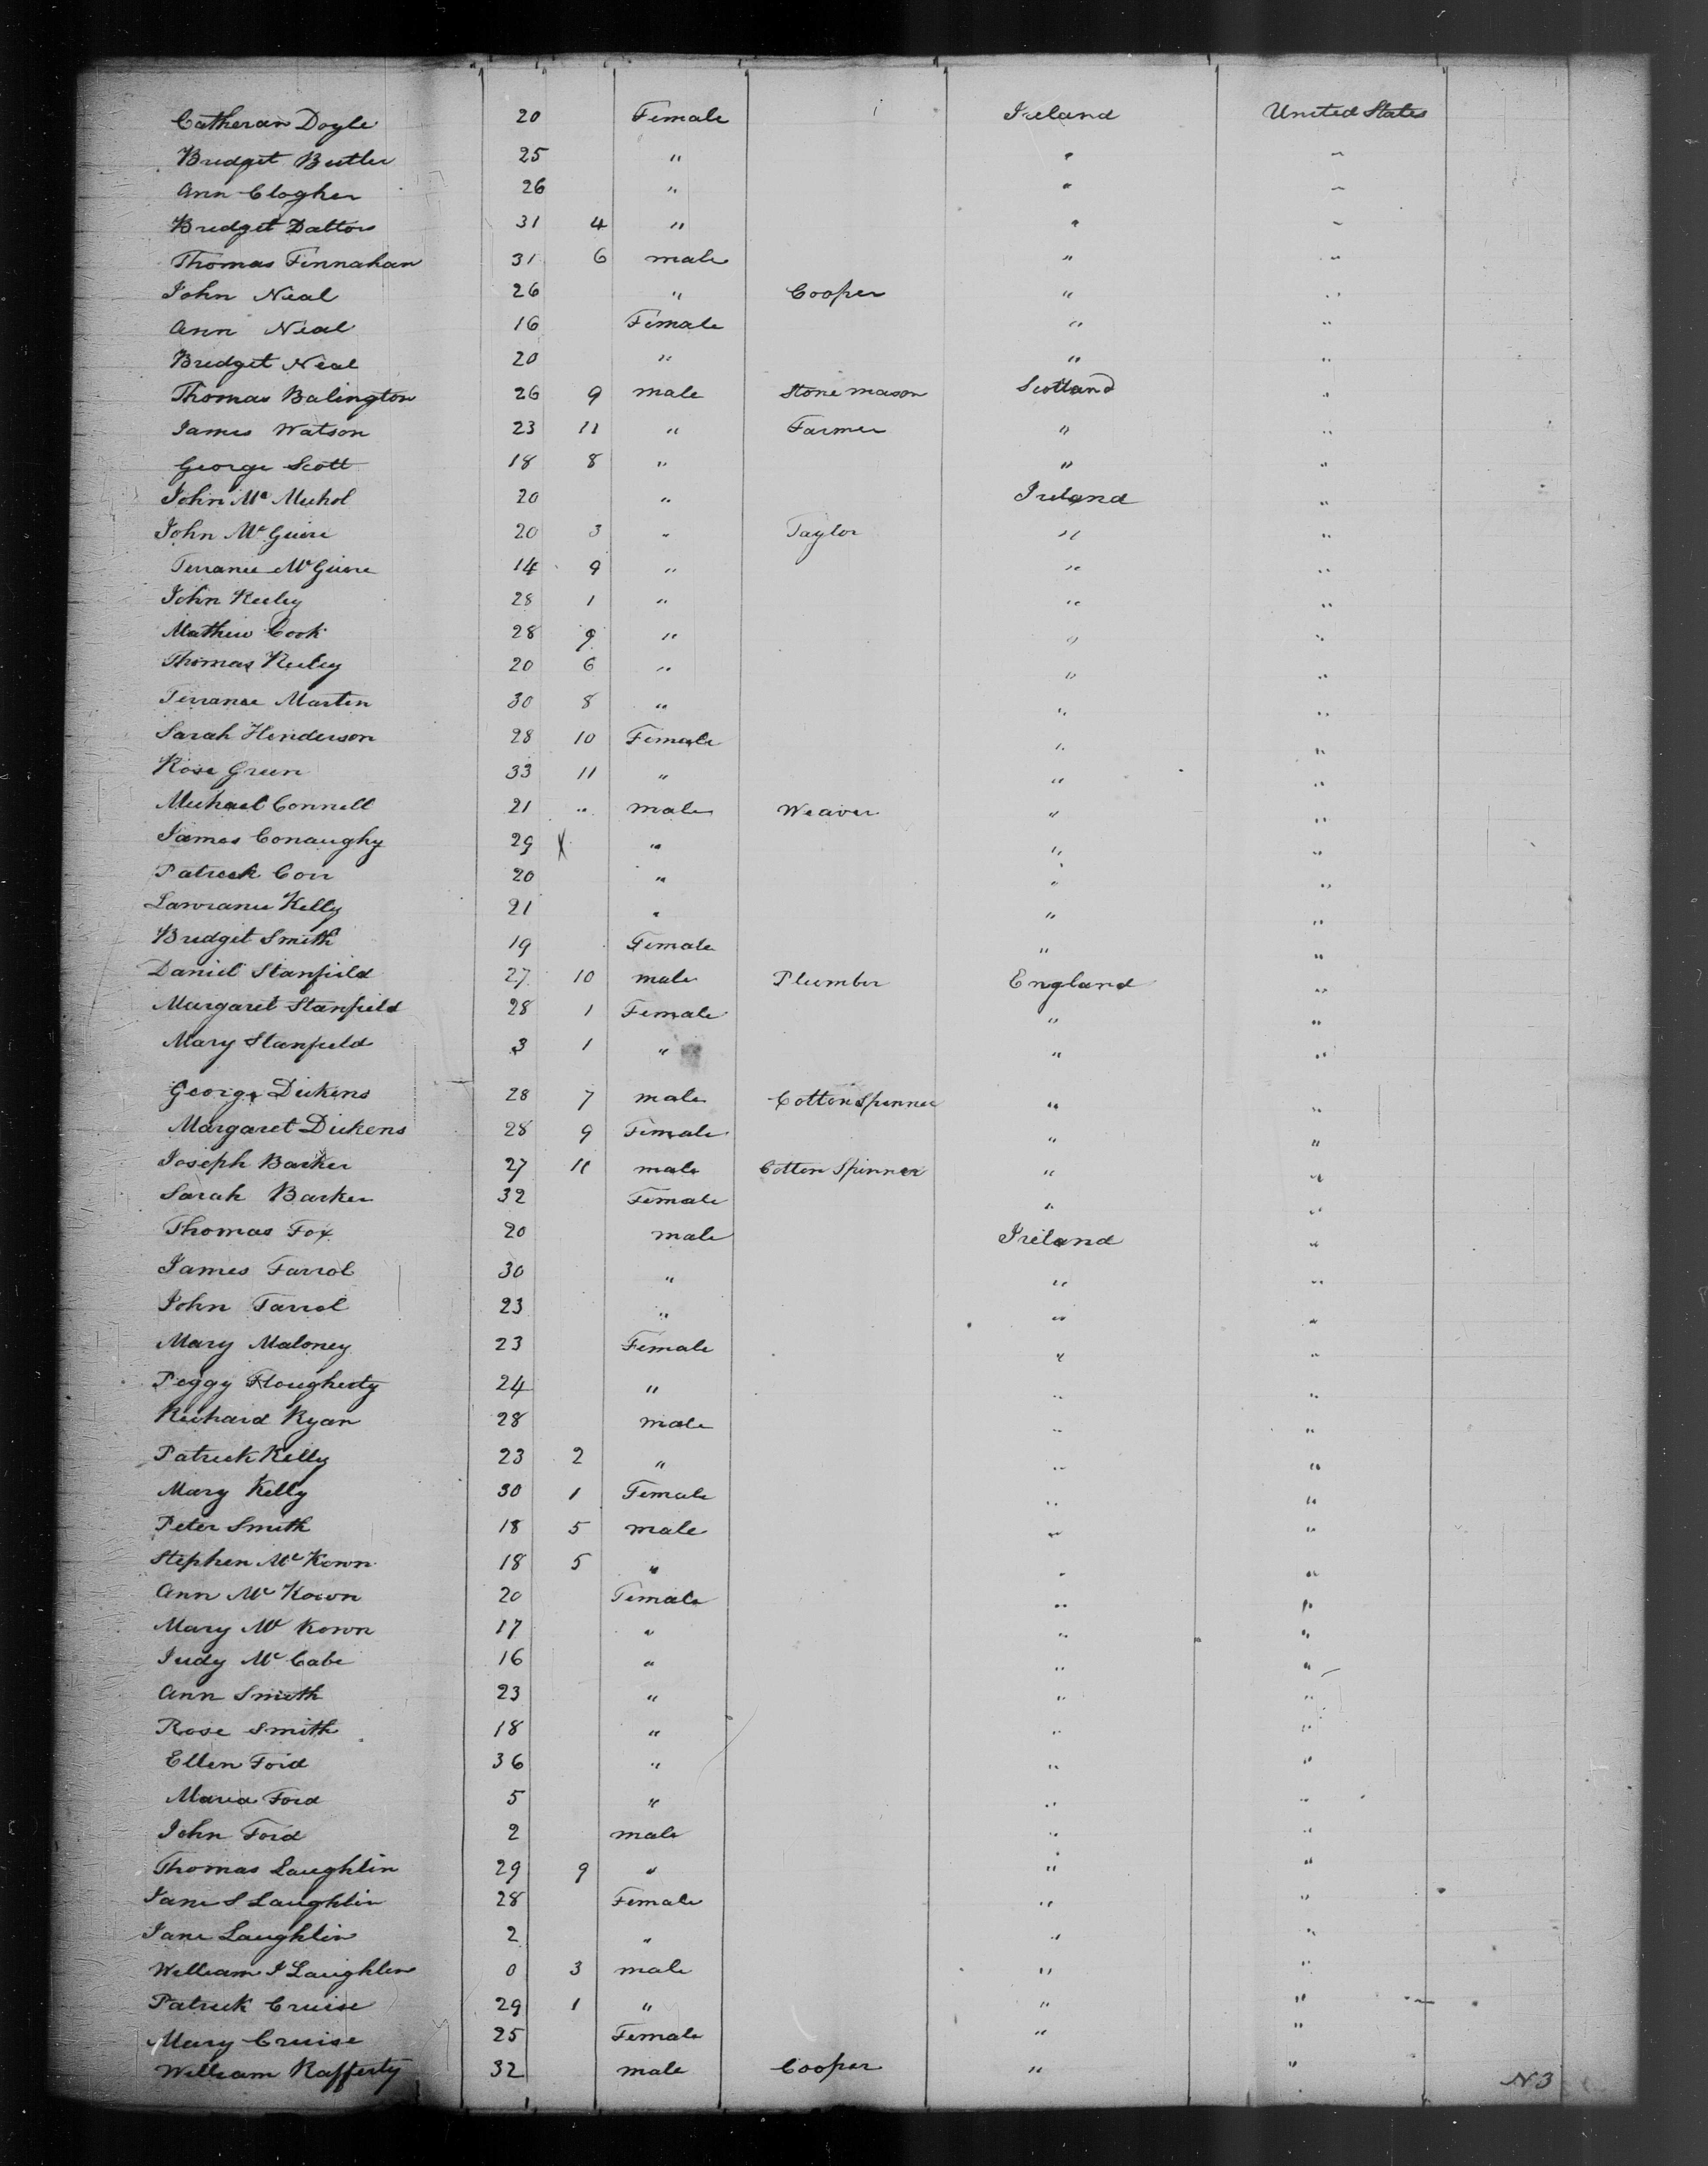 Catheran Doyle 20 Female Ireland United States
Bridget Butler 25 " " "
Ann Clogher 26 " " "
Bridget Dalton 31 4 " " "
Thomas Finnahan 31 6 male " "
John Neal 26 " Cooper " "
Ann Neal 16 Female " "
Bridget Neal 20 " " "
Thomas Balington 26 9 male Stone mason Scotland "
James Watson 23 11 " Farmer " "
George Scott 18 8 " " "
John Mc Michol 20 " Ireland "
John Mc Guire 20 3 " Taylor " "
Terrance McGuire 14 9 " " "
John Keeley 28 1 " " "
Mathew Cook 28 9 " " "
Thomas Keeley 20 6 " " "
Terrance Martin 30 8 " " "
Sarah Henderson 28 10 Female " "
Rose Green 33 11 " " "
Michael Connell 21 " male Weaver " "
James Conaughy 29 X " " "
Patrick Corr 20 " " "
Lawrance Kelly 21 " " "
Bridget Smith 19 Female " "
Daniel Stanfield 27 10 male Plumber England "
Margaret Stanfield 28 1 Female " "
Mary Stanfield 3 1 " " "
George Dickens 28 7 male Cotton Spinner " "
Margaret Dickens 28 9 Female " "
Joseph Barker 27 11 male Cotton Spinner " "
Sarah Barker 32 Female " "
Thomas Fox 20 male Ireland "
James Farrol 30 " " "
John Farrol 23 " " "
Mary Maloney 23 Female " "
Peggy Flougherty 24 " " "
Richard Ryan 28 male " "
Patrick Kelly 23 2 " " "
Mary Kelly 30 1 Female " "
Peter Smith 18 5 male " "
Stephen Mc Kown 18 5 " " "
Ann Mc Kown 20 Female " "
Mary Mc Kown 17 " " "
Judy Mc Cabe 16 " " "
Ann Smith 23 " " "
Rose Smith 18 " " "
Ellen Ford 36 " " "
Maria Ford 5 " " "
John Ford 2 male " "
Thomas Laughlin 29 9 " " "
Jane S Laughlin 28 Female " "
Jane Laughlin 2 " " "
William J Laughlin 0 3 male " "
Patrick Cruise 29 1 " " "
Mary Cruise 25 Female " "
William Rafferty 32 male Cooper " "
N 3